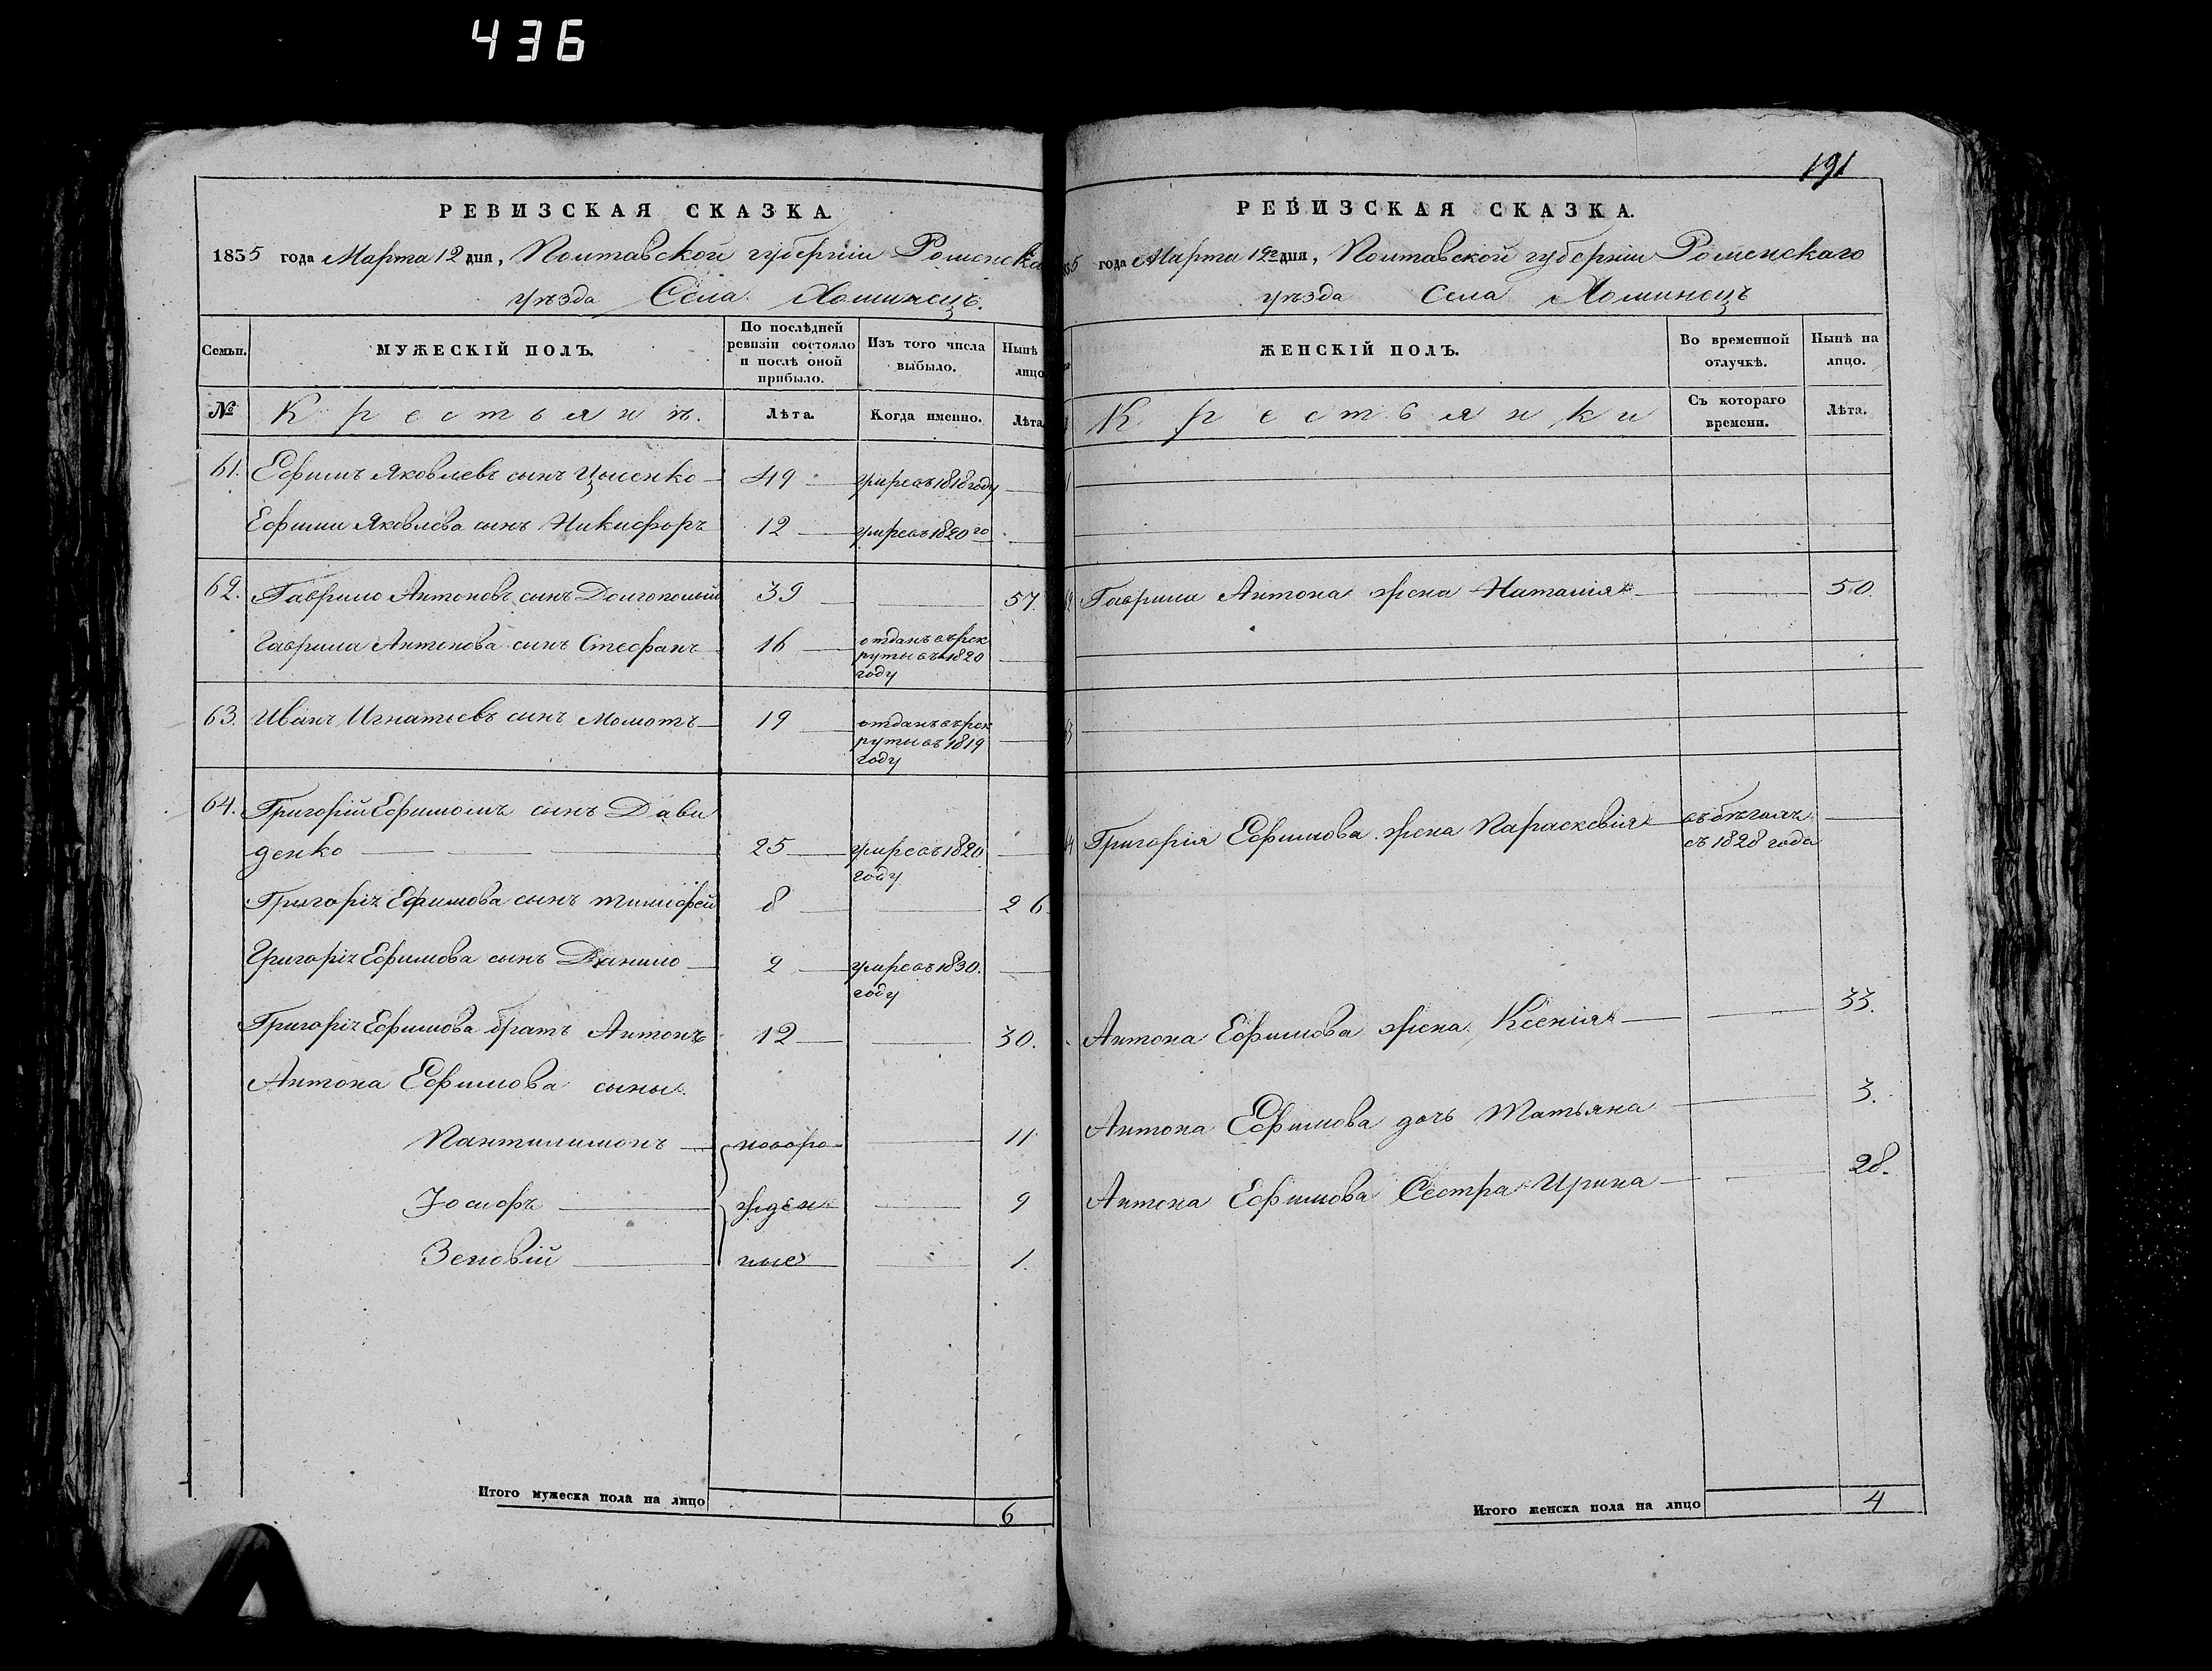 436
191
РЕВИЗСКАЯ СКАЗКА.
1835 года Марта 12 дня, Полтавской губерніи Роменска
уѣзда Села Хоминецъ.
Семьи.
МУЖЕСКІЙ ПОЛЪ.
По послѣдней
ревизіи состояло
и послѣ оной
прибыло.
Изъ того числа
выбыло.
Нынѣ
лицо
№
Крестьянъ.
Лѣта.
Когда именно.
Лѣта
61. Ефимъ Яковлевъ сынъ 49 умре въ 1818 году
Ефима Яковлева сынъ Никифоръ 12 умре въ 1820 го
62. Гаврило Антоновъ сынъ Долгополый 39 57.
Гаврила Антонова сынъ Стефанъ 16 отданъ въ рек
руты въ 1820
году
63. Иванъ Игнатьевъ сынъ Момотъ 19 отданъ въ рек
руты въ 1819
году
64. Григорій Ефимовъ сынъ Дави
денко 25 умре въ 1820
году
Григорія Ефимова сынъ Тимофей 8 26
Григорія Ефимова сынъ Данило 2 умре въ 1830.
году
Григорія Ефимова братъ Антонъ 12 30.
Антона Ефимова сыны
Пантилимонъ новоро 11
Іосифъ жден 9
Зеновій ные 1.
Итого мужеска пола на лицо 6
РЕВИЗСКАЯ СКАЗКА.
35 года Марта 12 дня, Полтавской губерніи Роменскаго
уѣзда Села Хоминецъ
ЖЕНСКІЙ ПОЛЪ.
Во временной
отлучкѣ.
Нынѣ на
лицо.
Крестьянки
Съ котораго
времени.
Лѣта.
Гаврила Антона жена Наталія 50.
Григорія Ефимова жена Параскевія въ бѣгахъ
съ 1828 года
Антона Ефимова жена Ксенія 33.
Антона Ефимова дочь Татьяна 3.
Антона Ефимова Сестра Ирина 28.
Итого женска пола на лицо 4